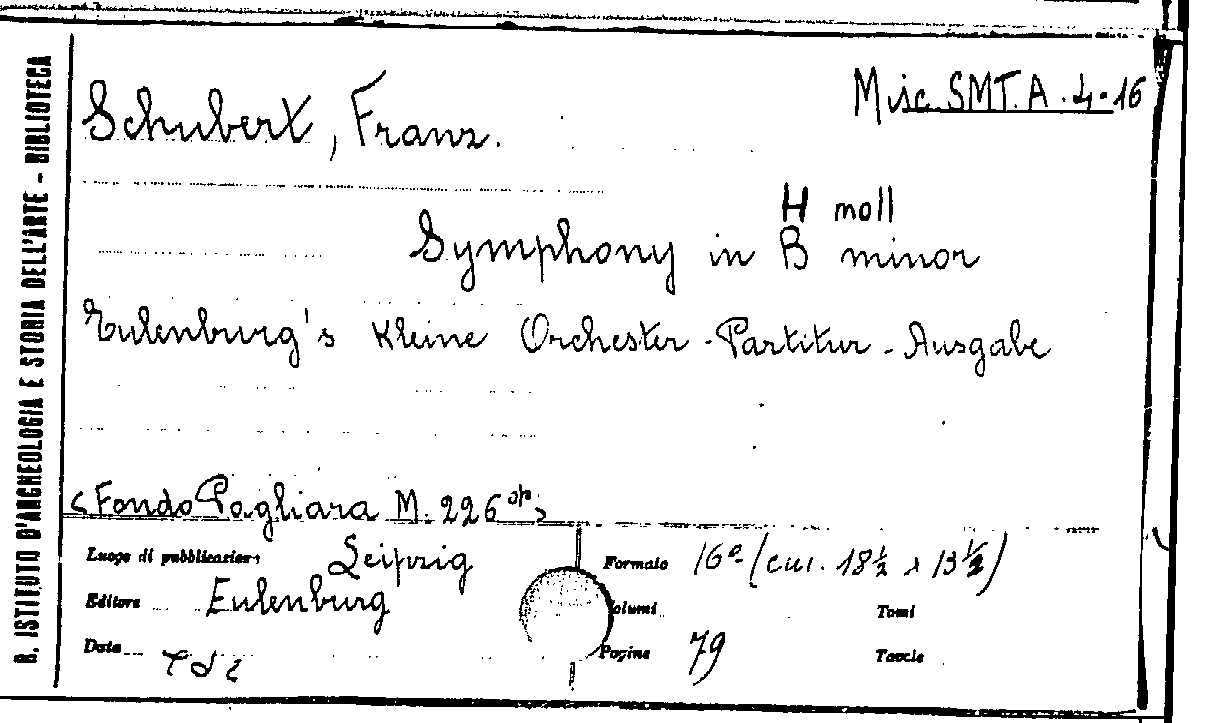 R. ISTITUTO D'ARCHEOLOGIA E STORIA DELL'ARTE - BIBLIOTECA
Misc. SMT. A. 4.16
Schubert, Franz.
H moll
Symphony in B minor
Eulenburg's Kleine Orchester-Partitur-Ausgabe
<Fondo Pagliara M. 226>
Luogo di pubblicazione Leipzig
Formato 16° (cm. 18½ x 13½)
Editore Eulenburg
Volumi
Tomi
Data
Pagine 79
Tavole